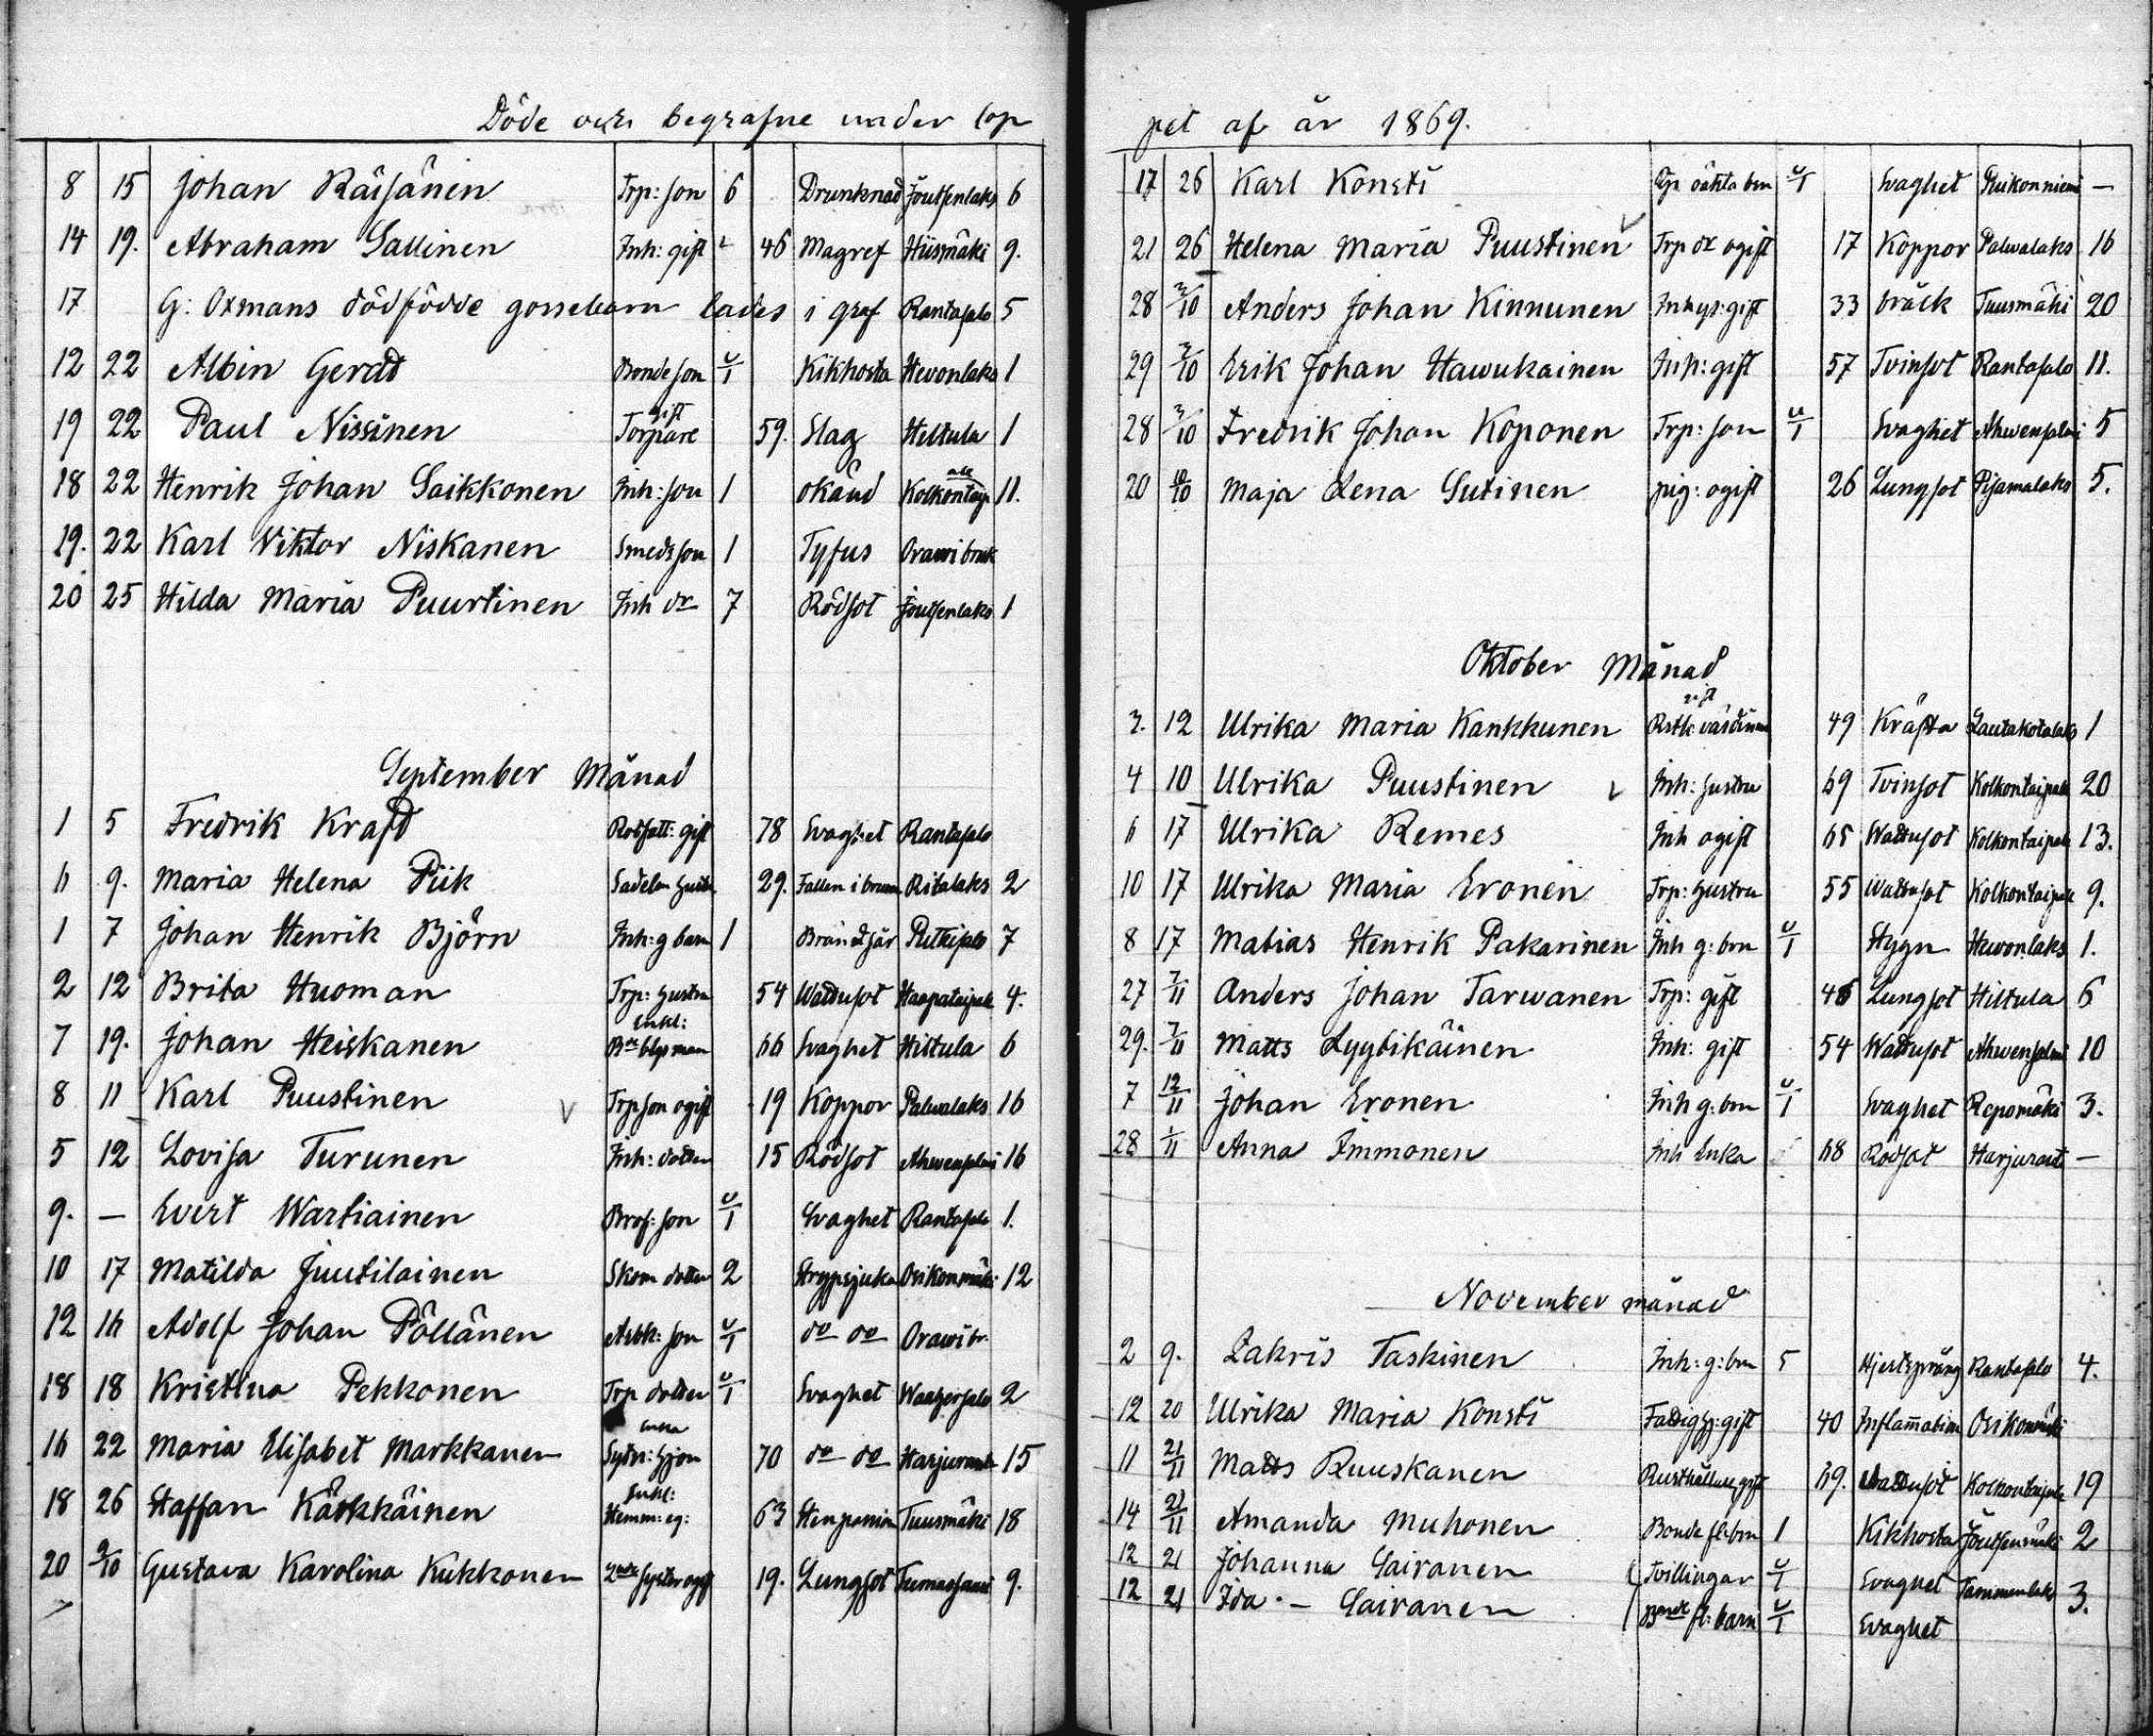 Döde och begrafne under lop
8 15 Johan Räisänen Trp: son 6 Drunknad Joutsenlaks 6
14 19. Abraham Sallinen Inh: gift 46 Magref Hiismäki 9.
17 G: Oxmans dödfödde gossebarn lades i graf Rantasalo 5
12 22 Albin Gerdt Bonde son u/1 Kikhosta Hevonlaks 1
gift
19 22 Paul Nissinen Torpare 59. Slag Hiltula 1
18 22 Henrik Johan Saikkonen Inh: son 1 okänd Kolkontaip 11.
19. 22 Karl Viktor Niskanen Smeds son 1 Tyfus Orawi bruk
20 25 Hilda Maria Puurtinen Inh dr 7 Rödsot Joutsenlaks 1
September Månad
1 5 Fredrik Kraft Rotfatt: gift 78 Svaghet Rantasalo
6 9. Maria Helena Piik Sadelm hustru 29. Fallen i brunn Ritalaks 2
1 7 Johan Henrik Björn Inh: g barn 1 Brändsår Putkisalo 7
2 12 Brita Huoman Trp: hustru 54 Wattusot Haapataipale 4.
Enkl:
7 19. Johan Heiskanen man 66 Svaghet Hiltula 6
8 11 Karl Puustinen V Trp son ogift 19 Koppor Palwalaks 16
5 12 Lovisa Turunen Inh: dotter 15 Rödsot Ahwensalmi 16
9. — Evert Wartiainen Brof: son u/1 Svaghet Rantasalo 1.
10 17 Matilda Juutilainen Skom dotter 2 Strypsjuka Osikonmäki 12
12 16 Adolf Johan Pöllänen Arbk: son u/1 do do Orawi br.
18 18 Kristina Pekkonen Trp dotter u/1 Svaghet Waahersalo 2
enka
16 22 Maria Elisabet Markkanen Sytn: hjon 70 do do Harjuranta 15
Enkl:
18 26 Staffan Kärkkäinen Hemm: eg: 63 Tuusmäki 18
20 2/10 Gustava Karolina Kukkonen syster ogift 19. Lungsot 9.
pet af år 1869.
17 26 Karl Konsti oäkta brn u/1 Svaghet —
21 26 Helena Maria Puustinen V Trp dr ogift 17 Koppor Palwalaks 16
28 3/10 Anders Johan Kinnunen Inhys: gift 33 bråck Tuusmäki 20
29 3/10 Erik Johan Hawukainen Inh: gift 57 Tvinsot Rantasalo 11.
28 3/10 Fredrik Johan Koponen Trp: son u/1 Svaghet Ahwensalmi 5
20 10/10 Maja Lena Sutinen pig: ogift 26 Lungsot Pijamalaks 5.
Oktober Månad
gift
3. 12 Ulrika Maria Kankkunen Rsth: värdinna 49 Kräfta Lautakotalaks 1
4 10 Ulrika Puustinen V Inh: hustru 69 Tvinsot Kolkontaipale 20
6 17 Ulrika Remes Inh ogift 65 Wattusot Kolkontaipale 13.
10 17 Ulrika Maria Eronen Trp: hustru 55 Wattusot Kolkontaipale 9.
8 17 Matias Henrik Pakarinen Inh g: brn u/1 Stygn Hewonlaks 1.
27 7/11 Anders Johan Tarwanen Trp: gift 46 Lungsot Hiltula 6
29. 7/11 Matts Lyytikäinen Inh: gift 54 Wattusot Ahwensalmi 10
7 12/11 Johan Eronen Inh g: brn u/1 Svaghet Repomäki 3.
28 1/11 Anna Immonen Inh Enka 68 Rödsot Harjurant —
November månad
2 9. Zakris Taskinen Inh: g: brn 5 Hjertsprång Rantasalo 4.
12 20 Ulrika Maria Konsti Fattighj: gift 40 Inflamation Osikonmäki
11 21/11 Matts Ruuskanen Rusthållare gift 69. Wattusot Kolkontaipale 19
14 21/11 Amanda Muhonen Bonde fl: brn 1 Kikhosta Joutsenmäki 2
12 21 Johanna Sairanen Tvillingar u/1 Svaghet Tammenlaks 3.
12 21 Ida — Sairanen fl: barn u/1 Svaghet